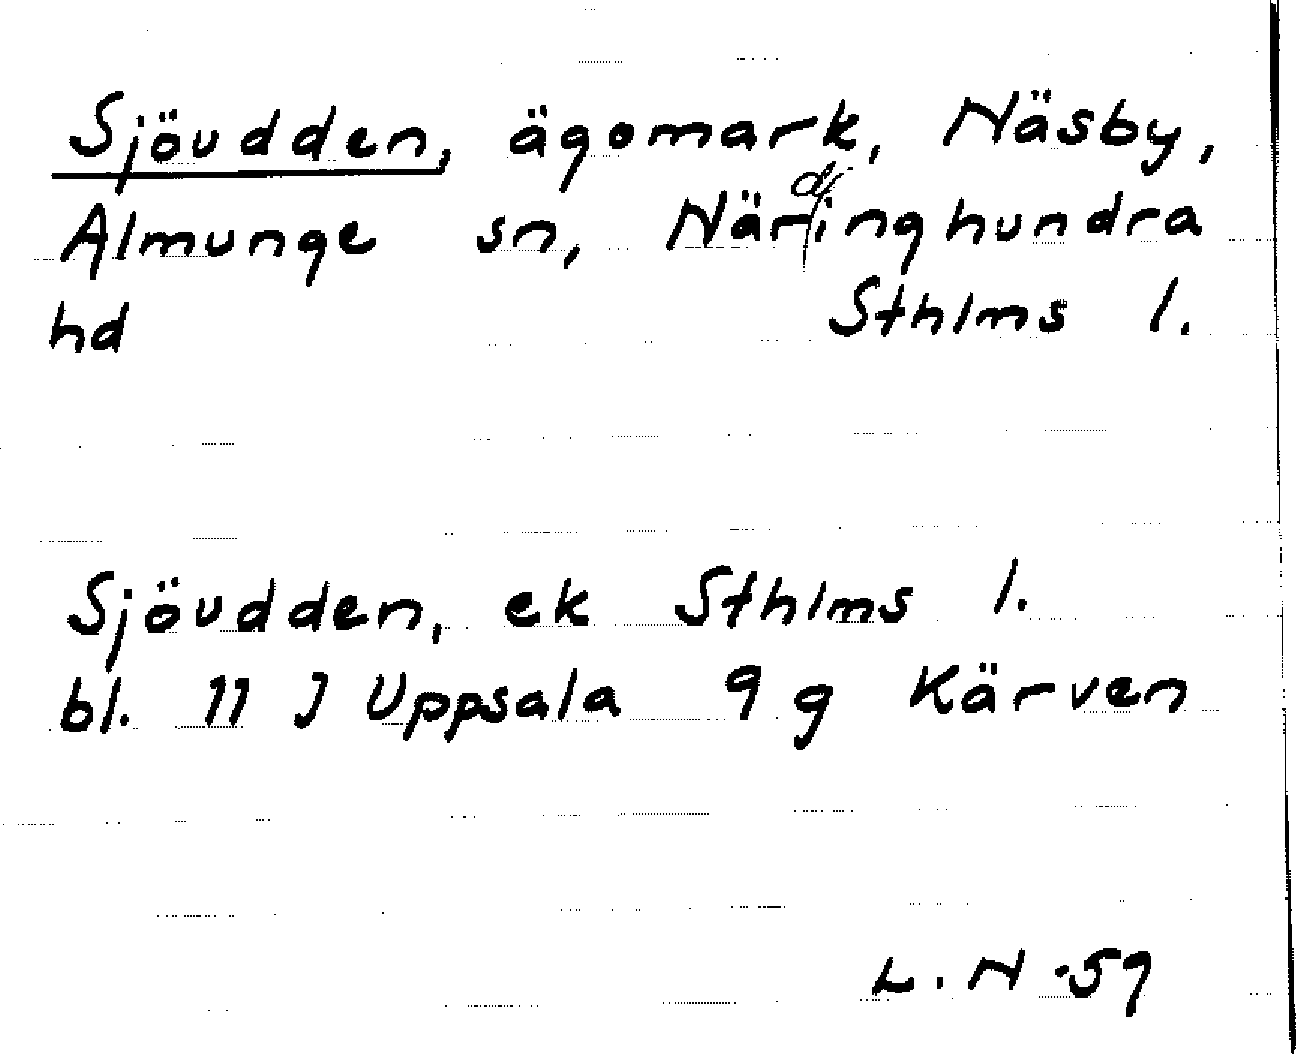 Sjöudden, ägomark, Näsby,
Almunge sn, Närdinghundra
hd Sthlms l.
Sjöudden, ek Sthlms l.
bl. 11 J Uppsala 9 g Kärven
L. N -59